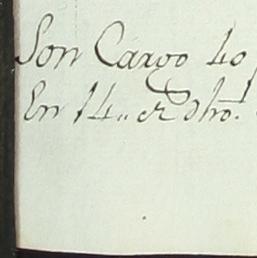 Son Cargo 40
En 14,, de dho.